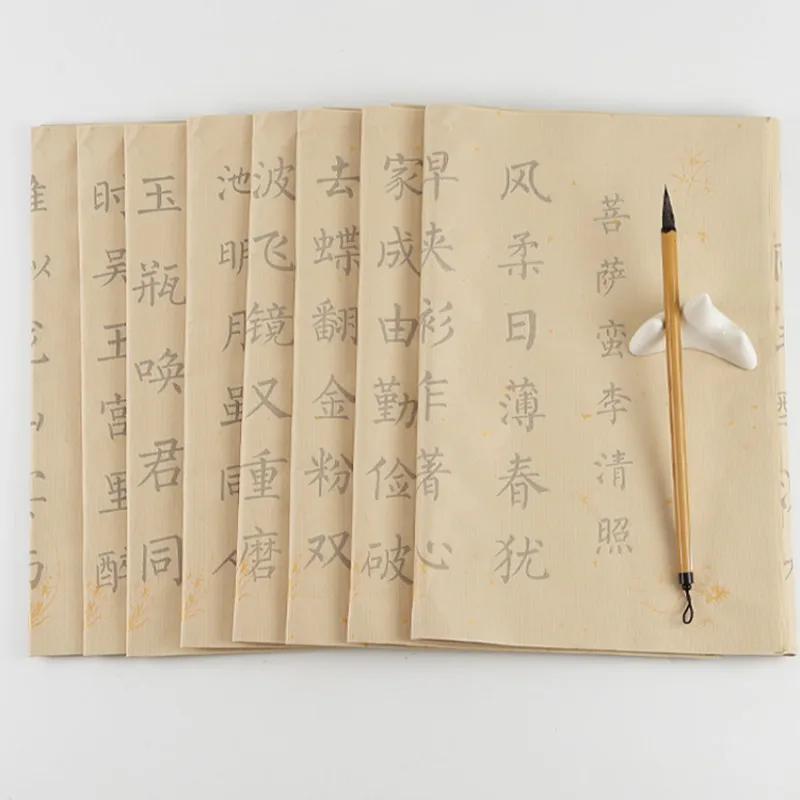 菩萨蛮李清照
风柔日薄春犹
早夹衫乍著心
家成由勤俭破
去蝶翻金粉双
波飞镜又重磨
池明月虽同
玉瓶唤君同
时吴王宫里醉